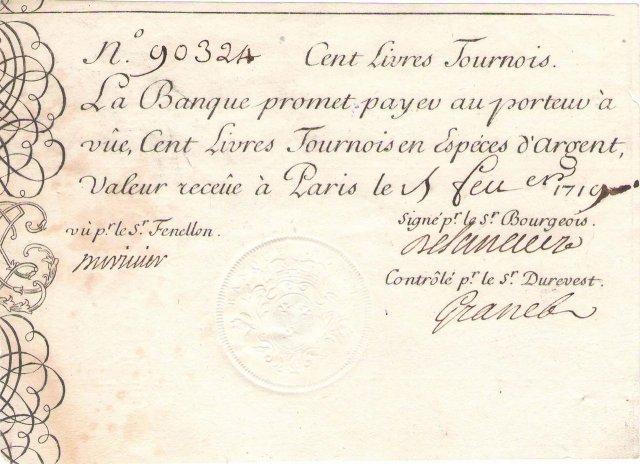 N.º 90324 Cent Livres Tournois.
La Banque promet payer au porteur à
vûe, Cent Livres Tournois en Espéces d'Argent,
valeur receüe à Paris le 1719
vû pr. le Sr. Fenellon.
Signé pr. le Sr. Bourgeois.
Contrôlé pr. le Sr. Durevest.
Granet